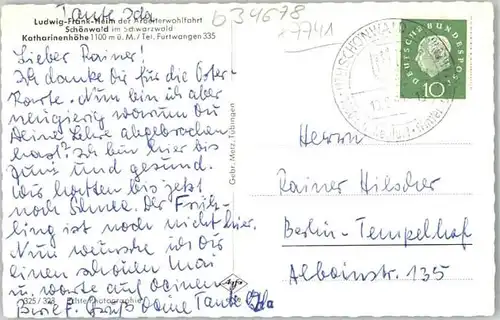 Tante Ida
Ludwig-Frank-Heim der Arbeiterwohlfahrt
Schönwald im Schwarzwald
Katharinenhöhe 1100 m ü. M./ Tel. Furtwangen 335
b34678
Lieber Rainer!
Ich danke Dir für die Oster-
Karte. Nun bin ich aber
neugierig warum Du
Deine Lehre abgebrochen
hast? Ich bin hier bis
Juni und gesund.
Wir hatten bis jetzt
noch Schnee. Der Früh-
ling ist noch nicht hier.
Nun wünsche ich Dir
einen schönen Mai
u. warte auf Deinen
Brief. Gruß Deine Tante Ida
325/328 Echte Photographie
Gebr. Metz, Tübingen
SCHÖNWALD
DEUTSCHE BUNDESPOST
10
Herrn
Rainer Hilscher
Berlin-Tempelhof
Alboinstr. 135